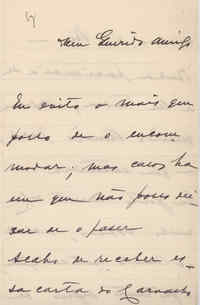 Meu Querido Amigo
Eu evito o mais que
posso de o encom
modar; mas casos ha
em que não posso dei
xar de o fazer
Acabo de receber es
sa carta do